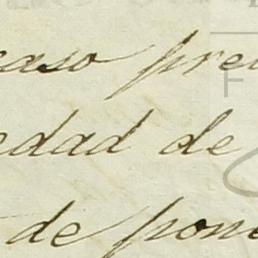 caso pre
edad de
de pone